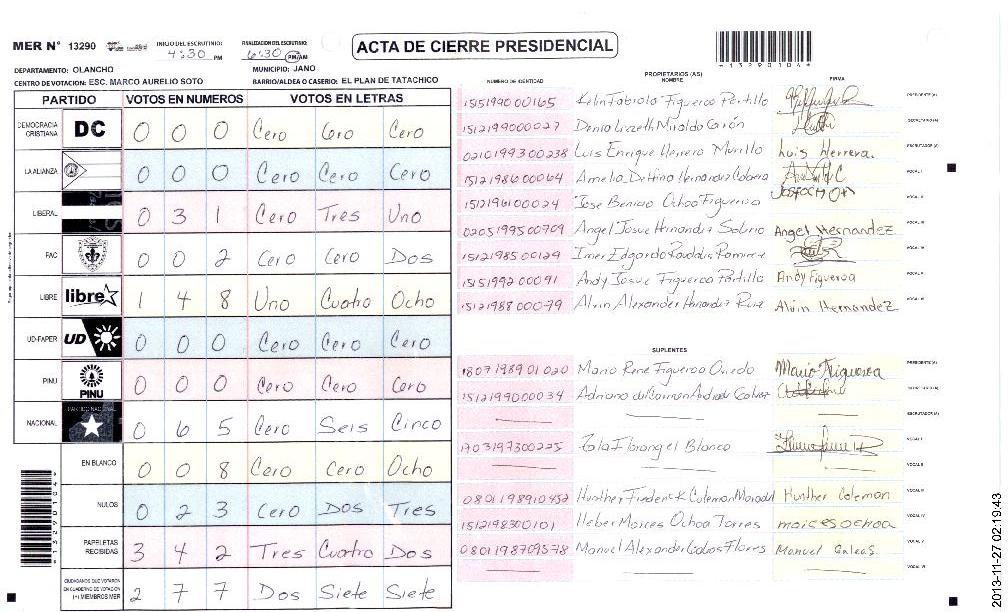 MER N° 13290
INICIO DEL ESCRUTINIO:
4:30 PM
FINALIZACION DEL ESCRUTINIO:
6:30 PM/AM
ACTA DE CIERRE PRESIDENCIAL
*13290104*
DEPARTAMENTO: OLANCHO
MUNICIPIO: JANO
CENTRO DE VOTACION: ESC. MARCO AURELIO SOTO
BARRIO/ALDEA O CASERIO: EL PLAN DE TATACHICO
PARTIDO VOTOS EN NUMEROS VOTOS EN LETRAS
DEMOCRACIA CRISTIANA DC 0 0 0 Cero Cero Cero
LA ALIANZA 0 0 0 Cero Cero Cero
LIBERAL 0 3 1 Cero Tres Uno
PAC 0 0 2 Cero Cero Dos
LIBRE libre 1 4 8 Uno Cuatro Ocho
UD-FAPER UD 0 0 0 Cero Cero Cero
PINU PINU 0 0 0 Cero Cero Cero
NACIONAL PARTIDO NACIONAL 0 6 5 Cero Seis Cinco
EN BLANCO 0 0 8 Cero Cero Ocho
NULOS 0 2 3 Cero Dos Tres
PAPELETAS RECIBIDAS 3 4 2 Tres Cuatro Dos
CIUDADANOS QUE VOTARON EN CUADERNO DE VOTACION (+) MIEMBROS MER 2 7 7 Dos Siete Siete
*13290104*
PROPIETARIOS (AS)
NUMERO DE IDENTIDAD NOMBRE FIRMA
1551990 00165 Kelin Fabiola Figueroa Portillo PRESIDENTE (A)
1512199000027 Denia Lizzeth Miralda Girón SECRETARIO (A)
0210199300238 Luis Enrique Herrera Murillo Luis Herrera. ESCRUTADOR (A)
1512198600064 Amelia Hernandez VOCAL I
1512196100024 Jose Ochoa Figueroa VOCAL II
0205199500709 Angel Josue Hernandez Angel Hernandez VOCAL III
1512198500129 Edgardo VOCAL IV
1515199200091 Andy Josue Figueroa Portillo Andy Figueroa VOCAL V
1512198800079 Alvin Alexander Hernandez Ruiz Alvin Hernandez VOCAL VI
SUPLENTES
1807198901020 Mario Rene Figueroa Oviedo Mario Figueroa PRESIDENTE (A)
1512199000034 Adriana del Carmen SECRETARIO (A)
ESCRUTADOR (A)
1703197300225 Florangel Blanco VOCAL I
VOCAL II
Hunther Frederick Coleman Hunther Coleman VOCAL III
1512198300101 Heber Moices Ochoa Torres moices ochoa VOCAL IV
0801198709578 Manuel Alexander Flores Manuel VOCAL V
VOCAL VI
2013-11-27 02:19:43